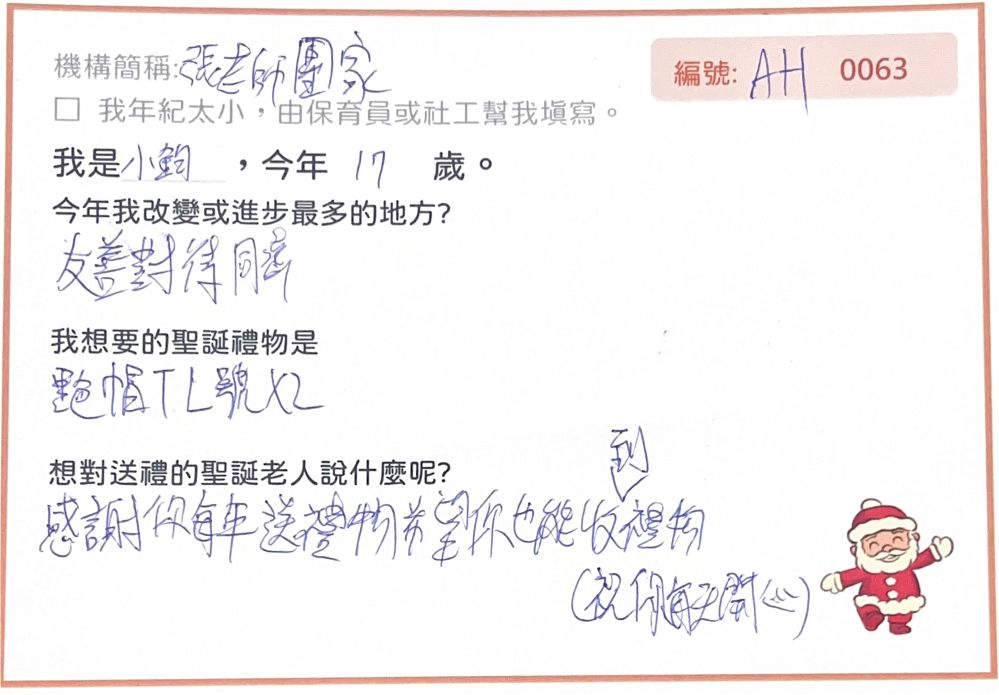 機構簡稱:張老師團家
編號: AH 0063
□ 我年紀太小，由保育員或社工幫我填寫。
我是小鈞，今年 17 歲。
今年我改變或進步最多的地方?
友善對待同齊
我想要的聖誕禮物是
帽T L號X2
想對送禮的聖誕老人說什麼呢?
感謝你每年送禮物希望你也能收到禮物
(祝你每天開心)